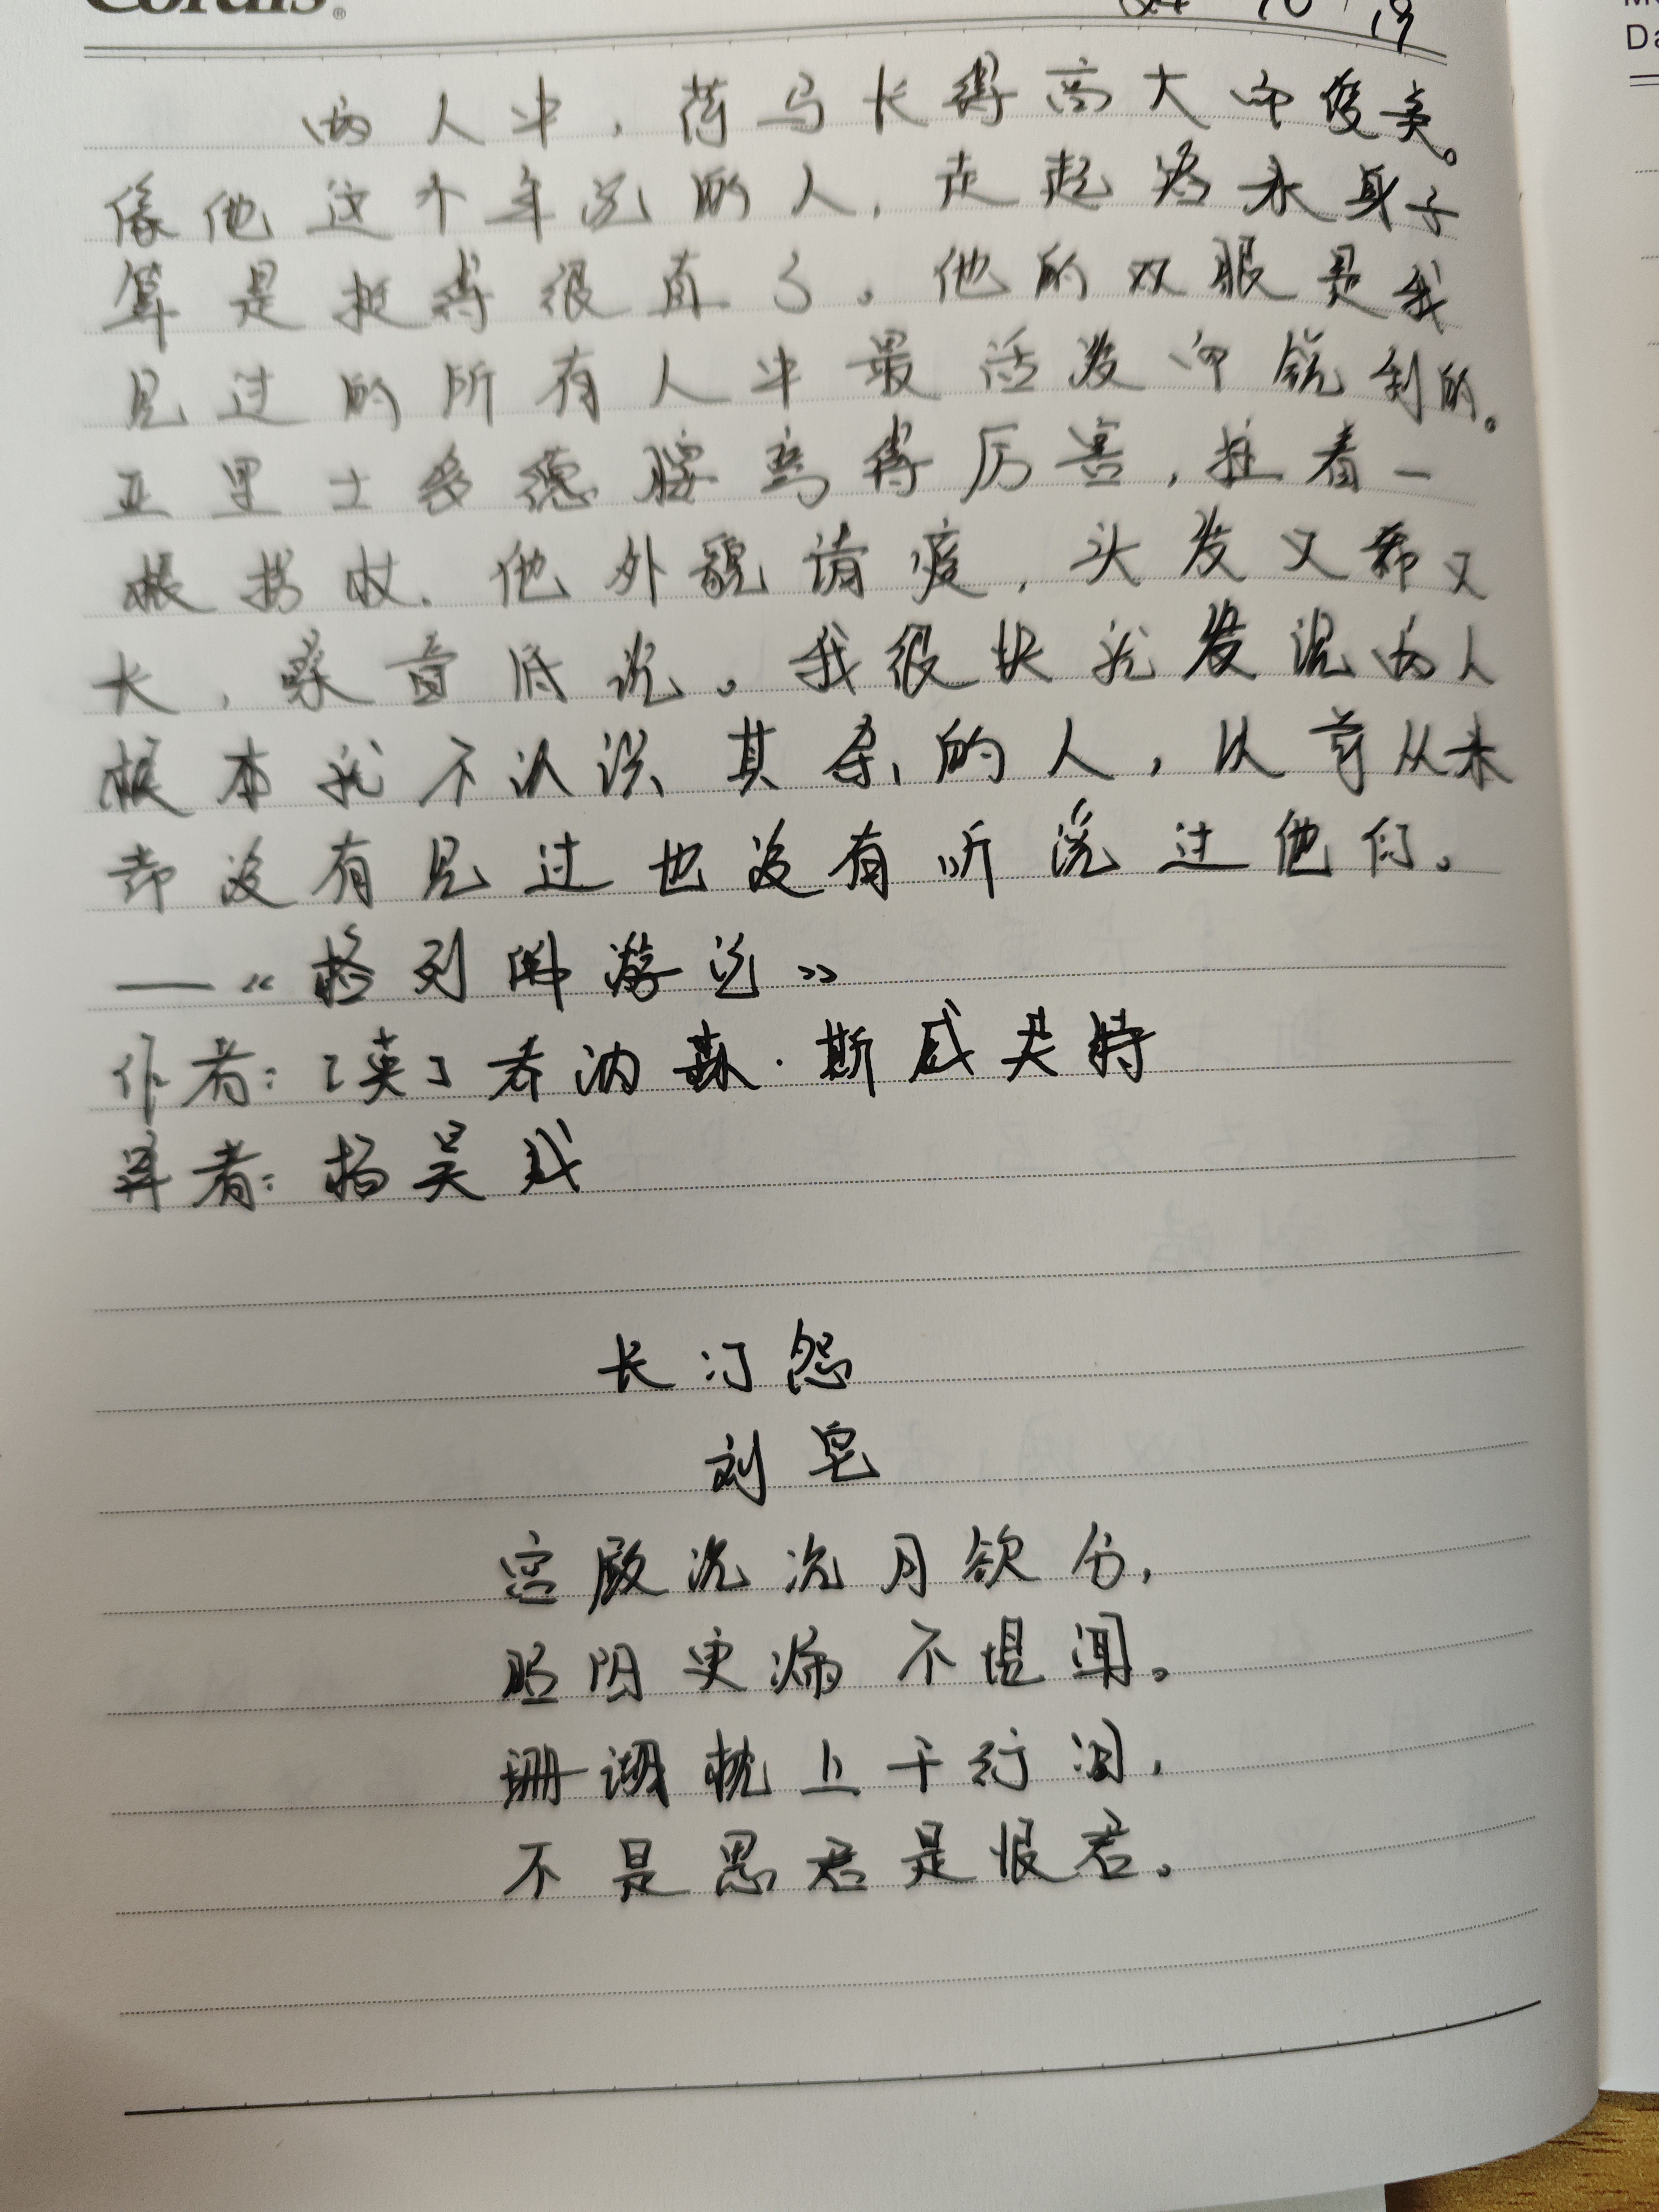 Cordis®
24 10 19
Da
两人中，荷马长得高大而俊美。
像他这个年纪的人，走起路来身子
算是挺得很直了。他的双眼是我
见过的所有人中最活泼而锐利的。
亚里士多德腰弯得厉害，拄着一
根拐杖。他外貌清瘦，头发又稀又
长，嗓音低沉。我很快就发现两人
根本就不认识其余的人，以前从来
都没有见过也没有听说过他们。
——《格列佛游记》
作者：[英]乔纳森·斯威夫特
译者：杨昊成
长门怨
刘皂
宫殿沉沉月欲分，
昭阳更漏不堪闻。
珊瑚枕上千行泪，
不是思君是恨君。